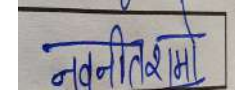 नवनीत शर्मा